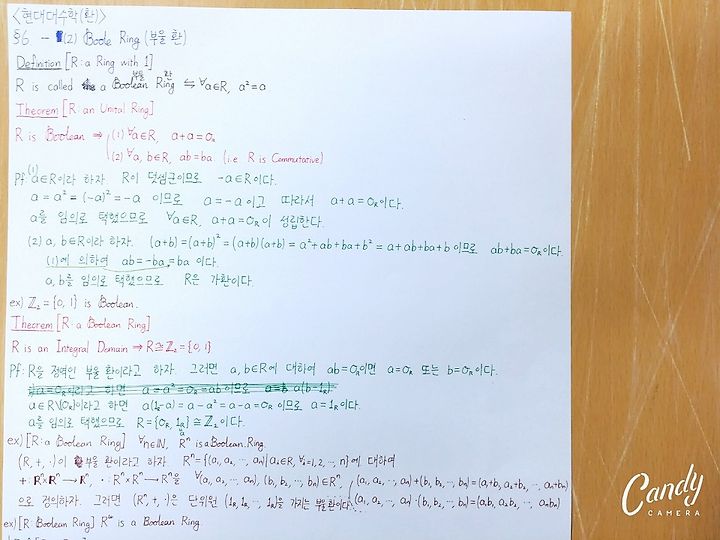 <현대대수학(환)>
§6 - (2) Boole Ring (부울 환)
Definition [R : a Ring with 1]
부울 환
R is called a Boolean Ring ⇋ ∀a∈R, a²=a
Theorem [R : an Unital Ring]
R is Boolean ⇒ (1) ∀a∈R, a+a=0_R
(2) ∀a, b∈R, ab=ba (i.e R is Commutative)
Pf. (1) a∈R이라 하자. R이 덧셈군이므로 -a∈R이다.
a = a² = (-a)² = -a 이므로 a = -a 이고 따라서 a+a = 0_R이다.
a를 임의로 택했으므로 ∀a∈R, a+a = 0_R이 성립한다.
(2) a, b∈R이라 하자. (a+b) = (a+b)² = (a+b)(a+b) = a²+ab+ba+b² = a+ab+ba+b 이므로 ab+ba=0_R이다.
(1)에 의하여 ab=-ba=ba 이다.
a, b를 임의로 택했으므로 R은 가환이다.
ex) ℤ₂ = {0, 1} is Boolean.
Theorem [R : a Boolean Ring]
R is an Integral Domain ⇒ R≅ℤ₂={0,1}
Pf. R을 정역인 부울 환이라고 하자. 그러면 a, b∈R에 대하여 ab=0_R이면 a=0_R 또는 b=0_R이다.
a∈R\{0_R}이라고 하면 a(1_R-a) = a-a² = a-a = 0_R 이므로 a=1_R이다.
a를 임의로 택했으므로 R={0_R, 1_R} ≅ ℤ₂이다.
ex) [R : a Boolean Ring] ∀n∈ℕ, Rⁿ is a Boolean Ring.
(R, +, ·)이 부울 환이라고 하자. Rⁿ={(a₁, a₂, ···, aₙ) | aᵢ∈R, ∀i=1, 2, ···, n}에 대하여
+ : Rⁿ×Rⁿ → Rⁿ, · : Rⁿ×Rⁿ → Rⁿ을 ∀(a₁, a₂, ···, aₙ), (b₁, b₂, ···, bₙ)∈Rⁿ, (a₁, a₂, ···, aₙ)+(b₁, b₂, ···, bₙ)=(a₁+b₁, a₂+b₂, ···, aₙ+bₙ)
으로 정의하자. 그러면 (Rⁿ, +, ·)은 단위원 (1_R, 1_R, ···, 1_R)을 가지는 부울환이다. (a₁, a₂, ···, aₙ)·(b₁, b₂, ···, bₙ)=(a₁b₁, a₂b₂, ···, aₙbₙ)
ex) [R : Boolean Ring] R^∞ is a Boolean Ring.
Candy
CAMERA